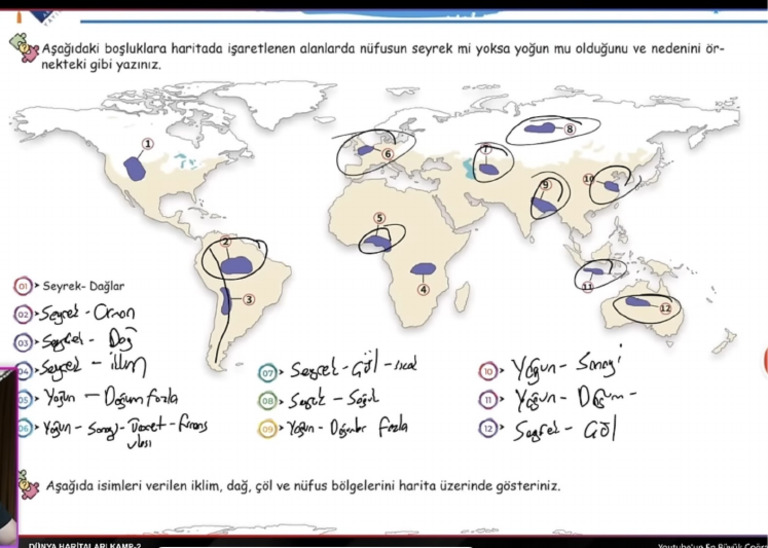 Aşağıdaki boşluklara haritada işaretlenen alanlarda nüfusun seyrek mi yoksa yoğun mu olduğunu ve nedenini ör-
nekteki gibi yazınız.
1
2
3
4
5
6
7
8
9
10
11
12
01 Seyrek- Dağlar
02 Seyrek - Orman
03 Seyrek - Dağ
04 Seyrek - iklim
05 Yoğun - Doğum fazla
06 Yoğun - Sanayi - Ticaret - Finans
ulaşı
07 Seyrek - Çöl - sıcak
08 Seyrek - Soğuk
09 Yoğun - Doğumlar fazla
10 Yoğun - Sanayi
11 Yoğun - Doğum -
12 Seyrek - Çöl
Aşağıda isimleri verilen iklim, dağ, çöl ve nüfus bölgelerini harita üzerinde gösteriniz.
DÜNYA HARİTALARI KAMP-2